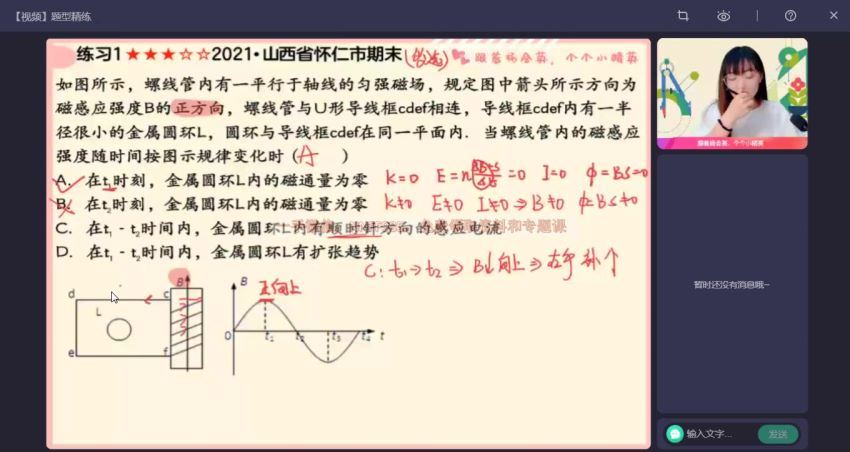 【视频】题型精练
练习1 ★★★☆☆ 2021·山西省怀仁市期末
跟着杨会英，个个小精英
如图所示，螺线管内有一平行于轴线的匀强磁场，规定图中箭头所示方向为
磁感应强度B的正方向，螺线管与U形导线框cdef相连，导线框cdef内有一半
径很小的金属圆环L，圆环与导线框cdef在同一平面内．当螺线管内的磁感应
强度随时间按图示规律变化时（ A ）
A．在t₁时刻，金属圆环L内的磁通量为零 K=0 E=n =0 I=0 Φ=BS=0
B．在t₂时刻，金属圆环L内的磁通量为零 K≠0 E≠0 I≠0⇒B≠0 Φ=BS≠0
C．在t₁－t₂时间内，金属圆环L内有顺时针方向的感应电流
D．在t₁－t₂时间内，金属圆环L有扩张趋势
C: t₁→t₂ ⇒ B↓向上 ⇒ 右手
d c B
L
e f
B 正向上
O t₁ t₂ t₃ t₄ t
跟着杨会英，个个小精英
暂时还没有消息哦~
输入文字... 发送